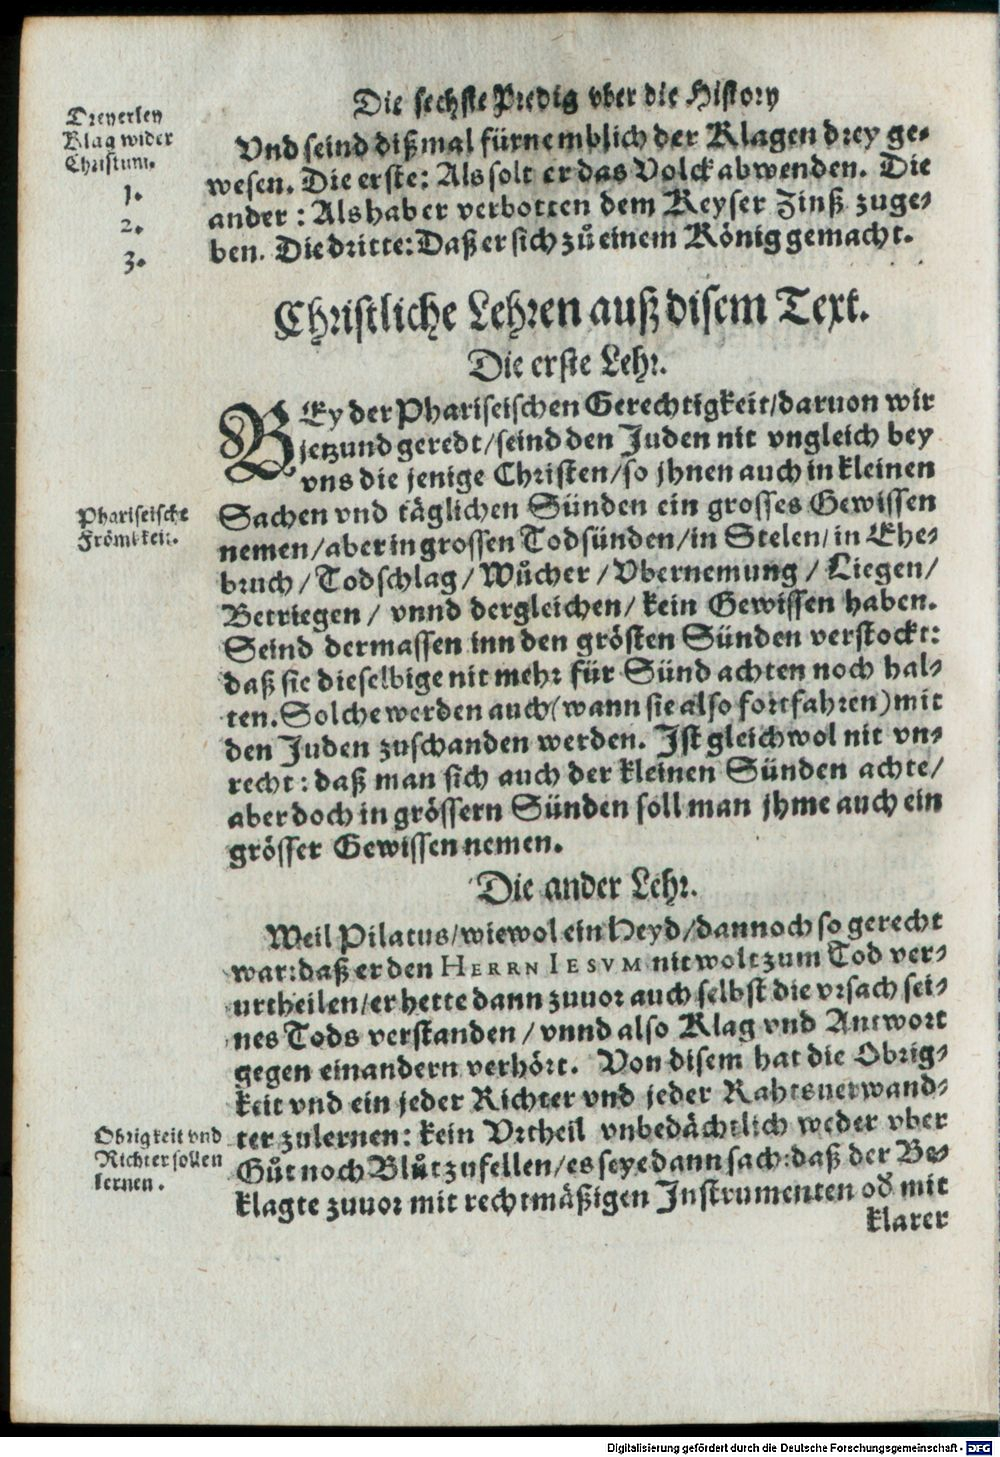 Die sechste Predig vber die History
Dreyerley
Klag wider
Christum.
1.
2.
3.
Vnd seind dißmal fürnemblich der Klagen drey ge-
wesen. Die erste: Als solt er das Volck abwenden. Die
ander: Als hab er verbotten dem Keyser Zinß zuge-
ben. Die dritte: Daß er sich zů einem König gemacht.
Christliche Lehren auß disem Text.
Die erste Lehr.
BEy der Phariseischen Gerechtigkeit/ daruon wir
jetzund geredt/ seind den Juden nit vngleich bey
vns die jenige Christen/ so jhnen auch in kleinen
Phariseische
Frömbkeit.
Sachen vnd täglichen Sünden ein grosses Gewissen
nemen/ aber in grossen Todsünden/ in Stelen/ in Ehe-
bruch/ Todschlag/ Wůcher/ Vbernemung/ Liegen/
Betriegen/ vnnd dergleichen/ kein Gewissen haben.
Seind dermassen inn den grösten Sünden verstockt:
daß sie dieselbige nit mehr für Sünd achten noch hal-
ten. Solche werden auch (wann sie also fortfahren) mit
den Juden zuschanden werden. Ist gleichwol nit vn-
recht: daß man sich auch der kleinen Sünden achte/
aber doch in grössern Sünden soll man jhme auch ein
grösser Gewissen nemen.
Die ander Lehr.
Weil Pilatus/ wiewol ein Heyd/ dannoch so gerecht
war: daß er den HERRN IESVM nit wolt zum Tod ver-
urtheilen/ er hette dann zuuor auch selbst die vrsach sei-
nes Tods verstanden/ vnnd also Klag vnd Antwort
gegen einandern verhört. Von disem hat die Obrig-
keit vnd ein jeder Richter vnd jeder Rahtsuerwand-
Obrigkeit vnd
Richter sollen
lernen.
ter zulernen: kein Vrtheil vnbedächtlich weder vber
Gůt noch Blůt zufellen/ es seye dann sach: daß der Be-
klagte zuuor mit rechtmäßigen Instrumenten od̃ mit
klarer
Digitalisierung gefördert durch die Deutsche Forschungsgemeinschaft - DFG